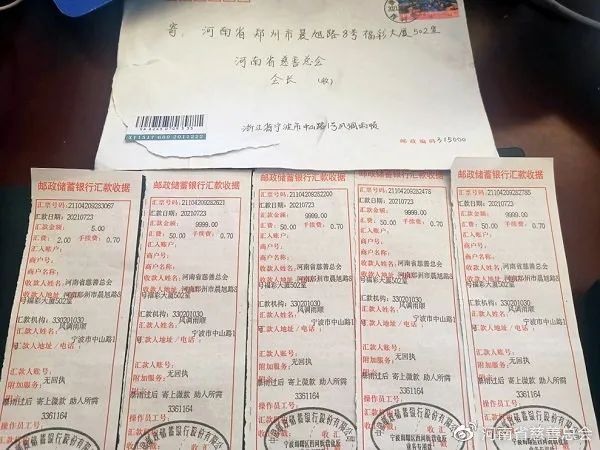 寄: 河南省郑州市晨旭路8号福彩大厦502室
河南省慈善总会
会长 (收)
浙江省宁波市中山路1号风调雨顺
邮政编码 315000
邮政储蓄银行汇款收据
汇票号码:21104209283067
汇款日期:20210723
汇款金额: 5.00
汇费: 2.00 手续费: 0.70
汇入账户:
商户号:
商户名称:
收款人姓名:河南省慈善总会
收款人地址:河南郑州市晨旭路8
号福彩大厦502室
汇款机构: 330201030
汇款人姓名: 风调雨顺
汇款人地址/电话: 宁波市中山路1
号
汇款人账号:
附加服务: 无回执
附言:
暴雨过后 寄上微款 助人所需
操作员工号: 3361164
邮政储蓄银行汇款收据
汇票号码:21104209282621
汇款日期:20210723
汇款金额: 9999.00
汇费: 50.00 手续费: 0.70
汇入账户:
商户号:
商户名称:
收款人姓名:河南省慈善总会
收款人地址:河南郑州市晨旭路8
号福彩大厦502室
汇款机构: 330201030
汇款人姓名: 风调雨顺
汇款人地址/电话: 宁波市中山路1
号
汇款人账号:
附加服务: 无回执
暴雨过后 寄上微款 助人所需
操作员工号: 3361164
邮政储蓄银行汇款收据
汇票号码:21104209282200
汇款日期:20210723
汇款金额: 9999.00
汇费: 50.00 手续费: 0.70
汇入账户:
商户号:
商户名称:
收款人姓名:河南省慈善总会
收款人地址:河南郑州市晨旭路8
号福彩大厦502室
汇款机构: 330201030
汇款人姓名: 风调雨顺
汇款人地址/电话: 宁波市中山路1
号
汇款人账号:
附加服务: 无回执
暴雨过后 寄上微款 助人所需
操作员工号: 3361164
邮政储蓄银行汇款收据
汇票号码:21104209282478
汇款日期:20210723
汇款金额: 9999.00
汇费: 50.00 手续费: 0.70
汇入账户:
商户号:
商户名称:
收款人姓名:河南省慈善总会
收款人地址:河南郑州市晨旭路8
号福彩大厦502室
汇款机构: 330201030
汇款人姓名: 风调雨顺
汇款人地址/电话: 宁波市中山路1
号
汇款人账号:
附加服务: 无回执
暴雨过后 寄上微款 助人所需
操作员工号: 3361164
邮政储蓄银行汇款收据
汇票号码:21104209282785
汇款日期:20210723
汇款金额: 9999.00
汇费: 50.00 手续费: 0.70
汇入账户:
商户号:
商户名称:
收款人姓名:河南省慈善总会
收款人地址:河南郑州市晨旭路8
号福彩大厦502室
汇款机构: 330201030
汇款人姓名: 风调雨顺
汇款人地址/电话: 宁波市中山路1
号
汇款人账号:
附加服务: 无回执
暴雨过后 寄上微款 助人所需
操作员工号: 3361164
@河南省慈善总会